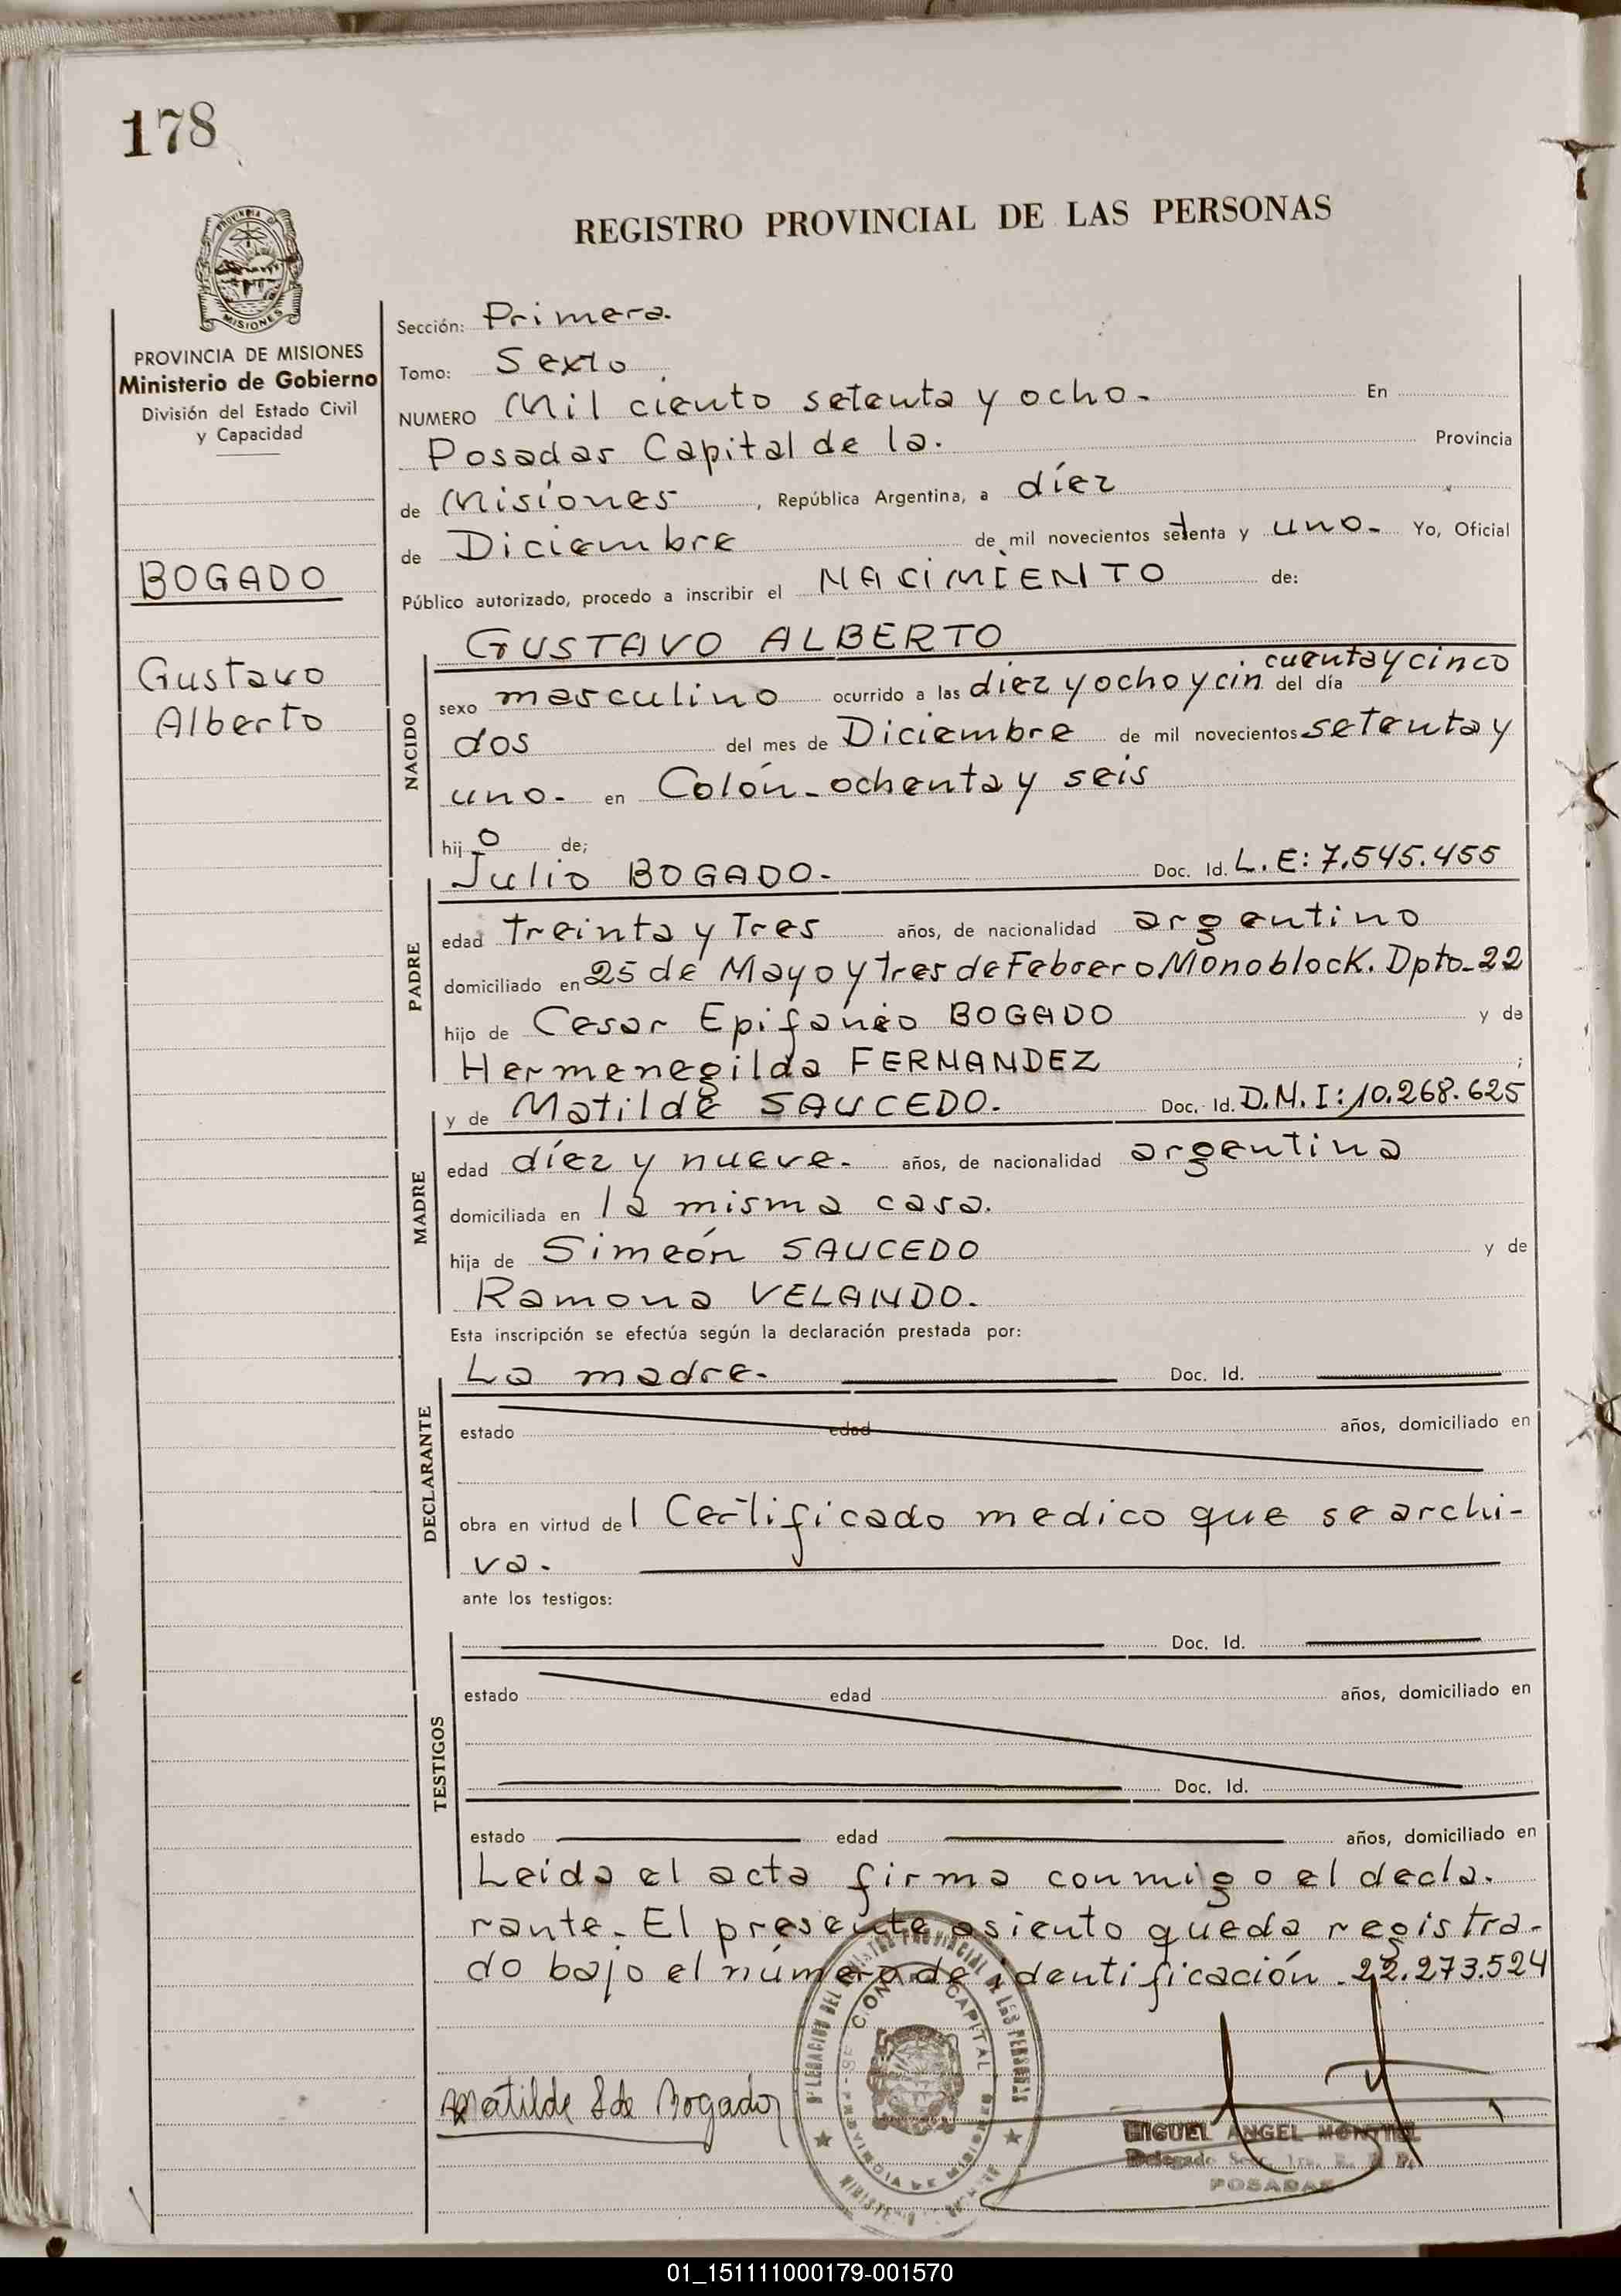 178
PROVINCIA DE
MISIONES
REGISTRO PROVINCIAL DE LAS PERSONAS
PROVINCIA DE MISIONES
Ministerio de Gobierno
División del Estado Civil
y Capacidad
BOGADO
Gustavo
Alberto
Sección: Primera.
Tomo: Sexto
NUMERO Mil ciento setenta y ocho. En
Posadas Capital de la. Provincia
de Misiones, República Argentina, a díez
de Diciembre de mil novecientos setenta y uno. Yo, Oficial
Público autorizado, procedo a inscribir el NACIMIENTO de:
NACIDO
GUSTAVO ALBERTO
cuenta y cinco
sexo masculino ocurrido a las diez y ocho y cin del día
dos del mes de Diciembre de mil novecientos setenta y
uno. en Colón - ochenta y seis
hijo de;
PADRE
Julio BOGADO. Doc. Id. L.E: 7.545.455
edad treinta y Tres años, de nacionalidad argentino
domiciliado en 25 de Mayo y tres de Febrero Monoblock. Dpto. 22
hijo de Cesar Epifanio BOGADO y de
Hermenegilda FERNANDEZ;
MADRE
y de Matilde SAUCEDO. Doc. Id. D.N.I: 10.268.625
edad díez y nueve. años, de nacionalidad argentina
domiciliada en la misma casa.
hija de Simeón SAUCEDO y de
Ramona VELANDO.
Esta inscripción se efectúa según la declaración prestada por:
DECLARANTE
La madre. Doc. Id.
estado edad años, domiciliado en
obra en virtud del Certificado medico que se archi-
va.
ante los testigos:
TESTIGOS
Doc. Id.
estado edad años, domiciliado en
Doc. Id.
estado edad años, domiciliado en
Leida el acta firma conmigo el decla.
rante. El presente asiento queda registra-
do bajo el número de identificación 22.273.524
Matilde S de Bogado
CAPITAL
PROVINCIA DE MISIONES
MIGUEL ANGEL MONTIEL
Delegado Secc. 1ra. R. P. P.
POSADAS
01_151111000179-001570